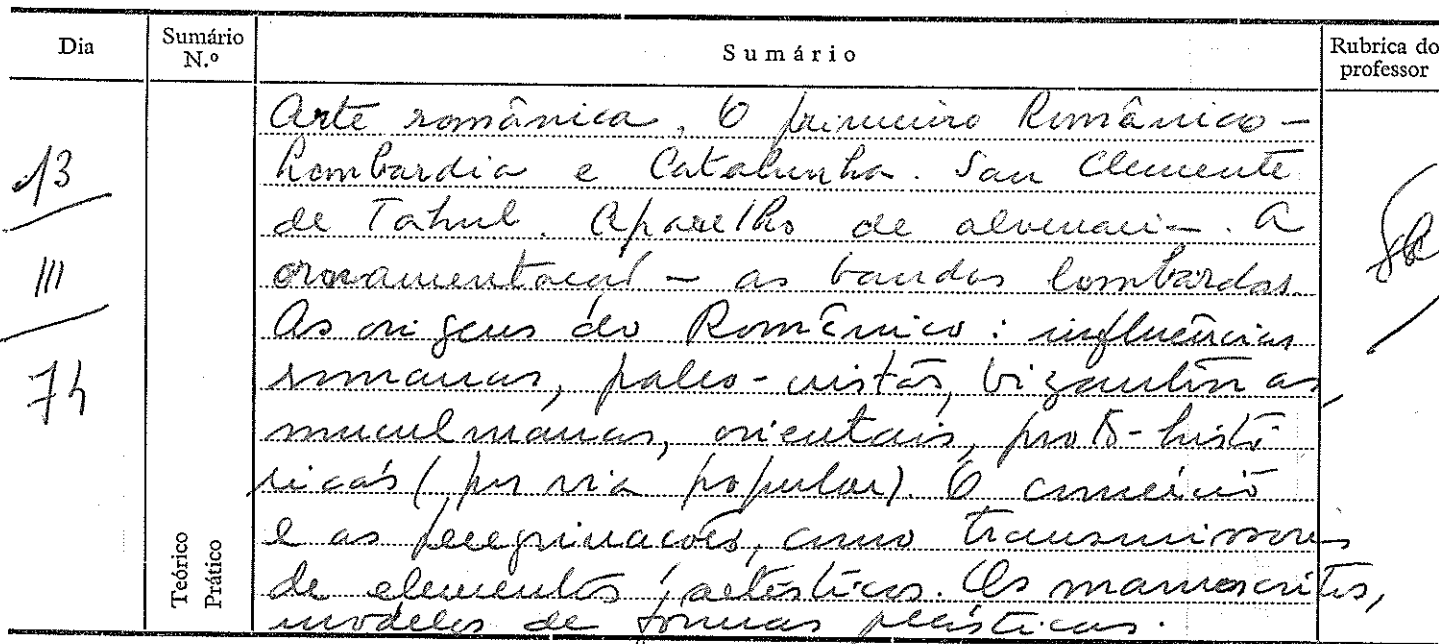 Dia
Sumário N.º
Sumário
Rubrica do professor
13
III
74
Teórico
Prático
Arte românica. O primeiro Românico -
Lombardia e Catalunha. San Clemente
de Tahul. Aparelho de alvenaria. A
ornamentação - as bandas lombardas.
As origens do Românico: influências
romanas, paleo-cristãs, bizantinas,
muculmanas, orientais, proto-histó-
ricas (por via popular). O comércio
e as peregrinacões, como transmissores
de elementos artísticos. Os manuscritos,
modelos de formas plásticas.